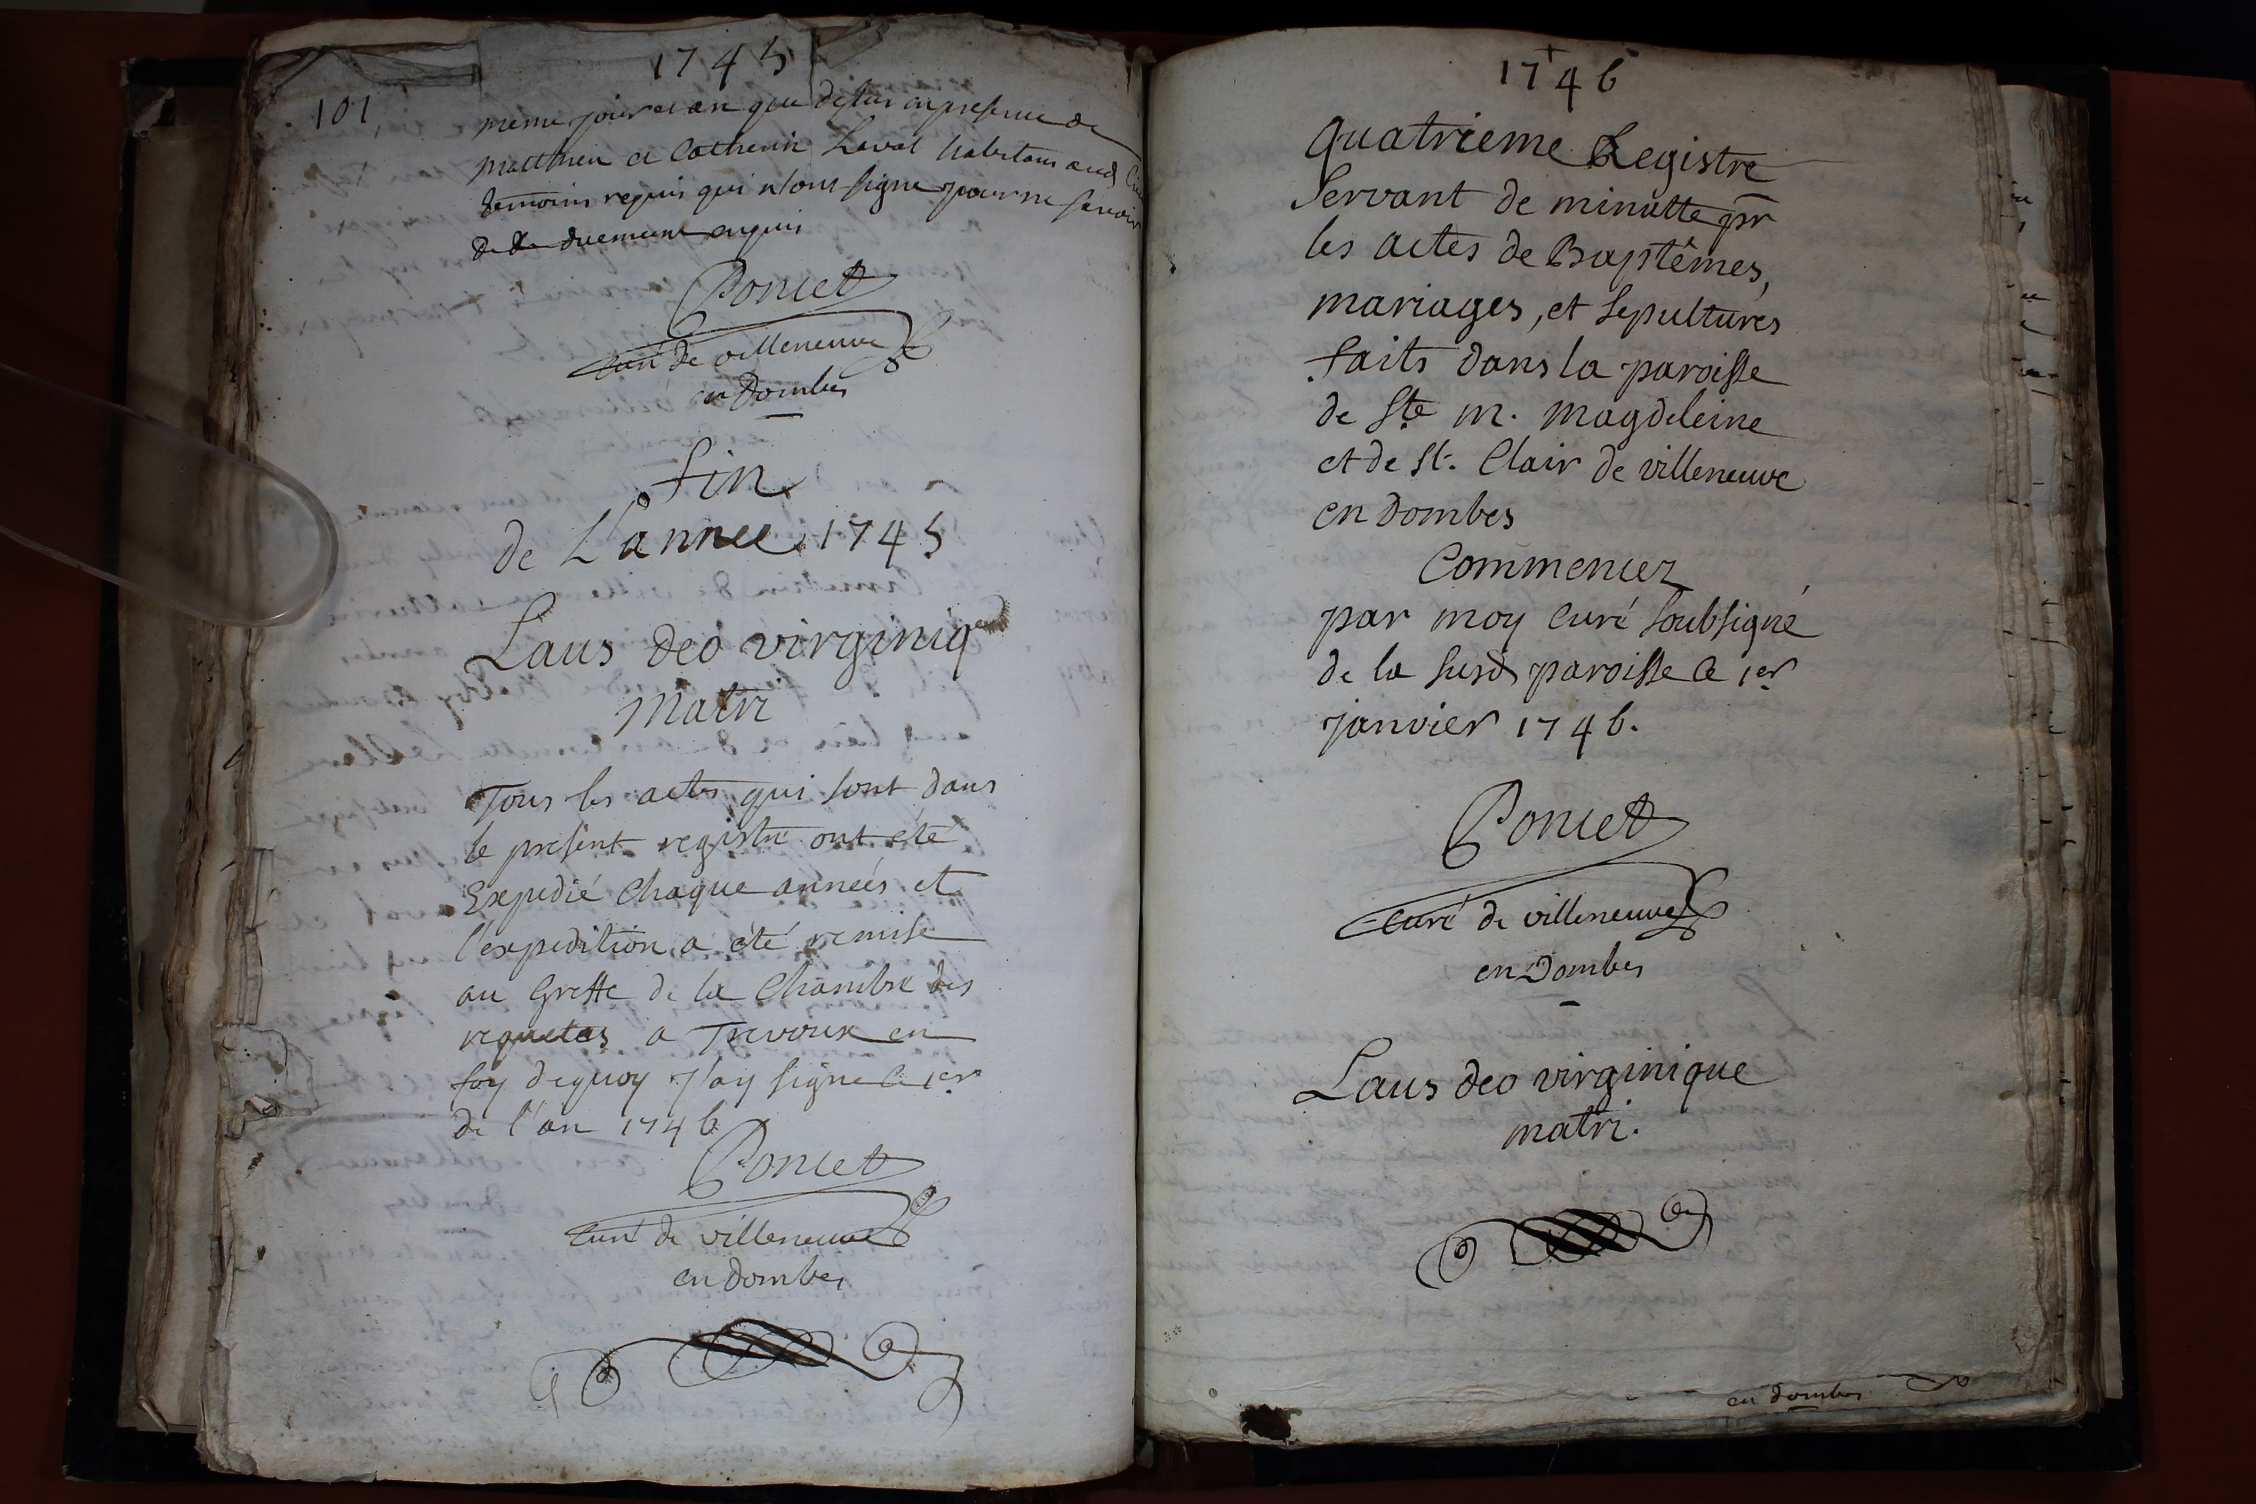 1745
101
meme jour et an que desus en presence de
Matthieu et Catherin Laval habitans aud lieu
temoins requis qui n'ont signé pour ne savoir
de duement enquis
Poncet
curé de villeneuve
en Dombes
fin
de L'annee 1745
Laus deo virginiq
Matri
Tous les actes qui sont dans
le présent registre ont été
Expedié Chaque années et
l'expedition a été remise
au Greffe de la Chambre des
requetes a Trevoux en
foy dequoy j'ay signé ce 1er
de l'an 1746
Poncet
curé de villeneuve
en Dombes
1746
Quatrieme Registre
Servant de minutte pr
les actes de Baptêmes,
mariages, et sepultures
faits dans la paroisse
de Ste m. magdeleine
et de St. Clair de villeneuve
en Dombes
Commencez
par moy curé soubsigné
de la susd paroisse ce 1er
janvier 1746.
Poncet
curé de villeneuve
en Dombes
Laus deo virginique
matri.
en Dombes